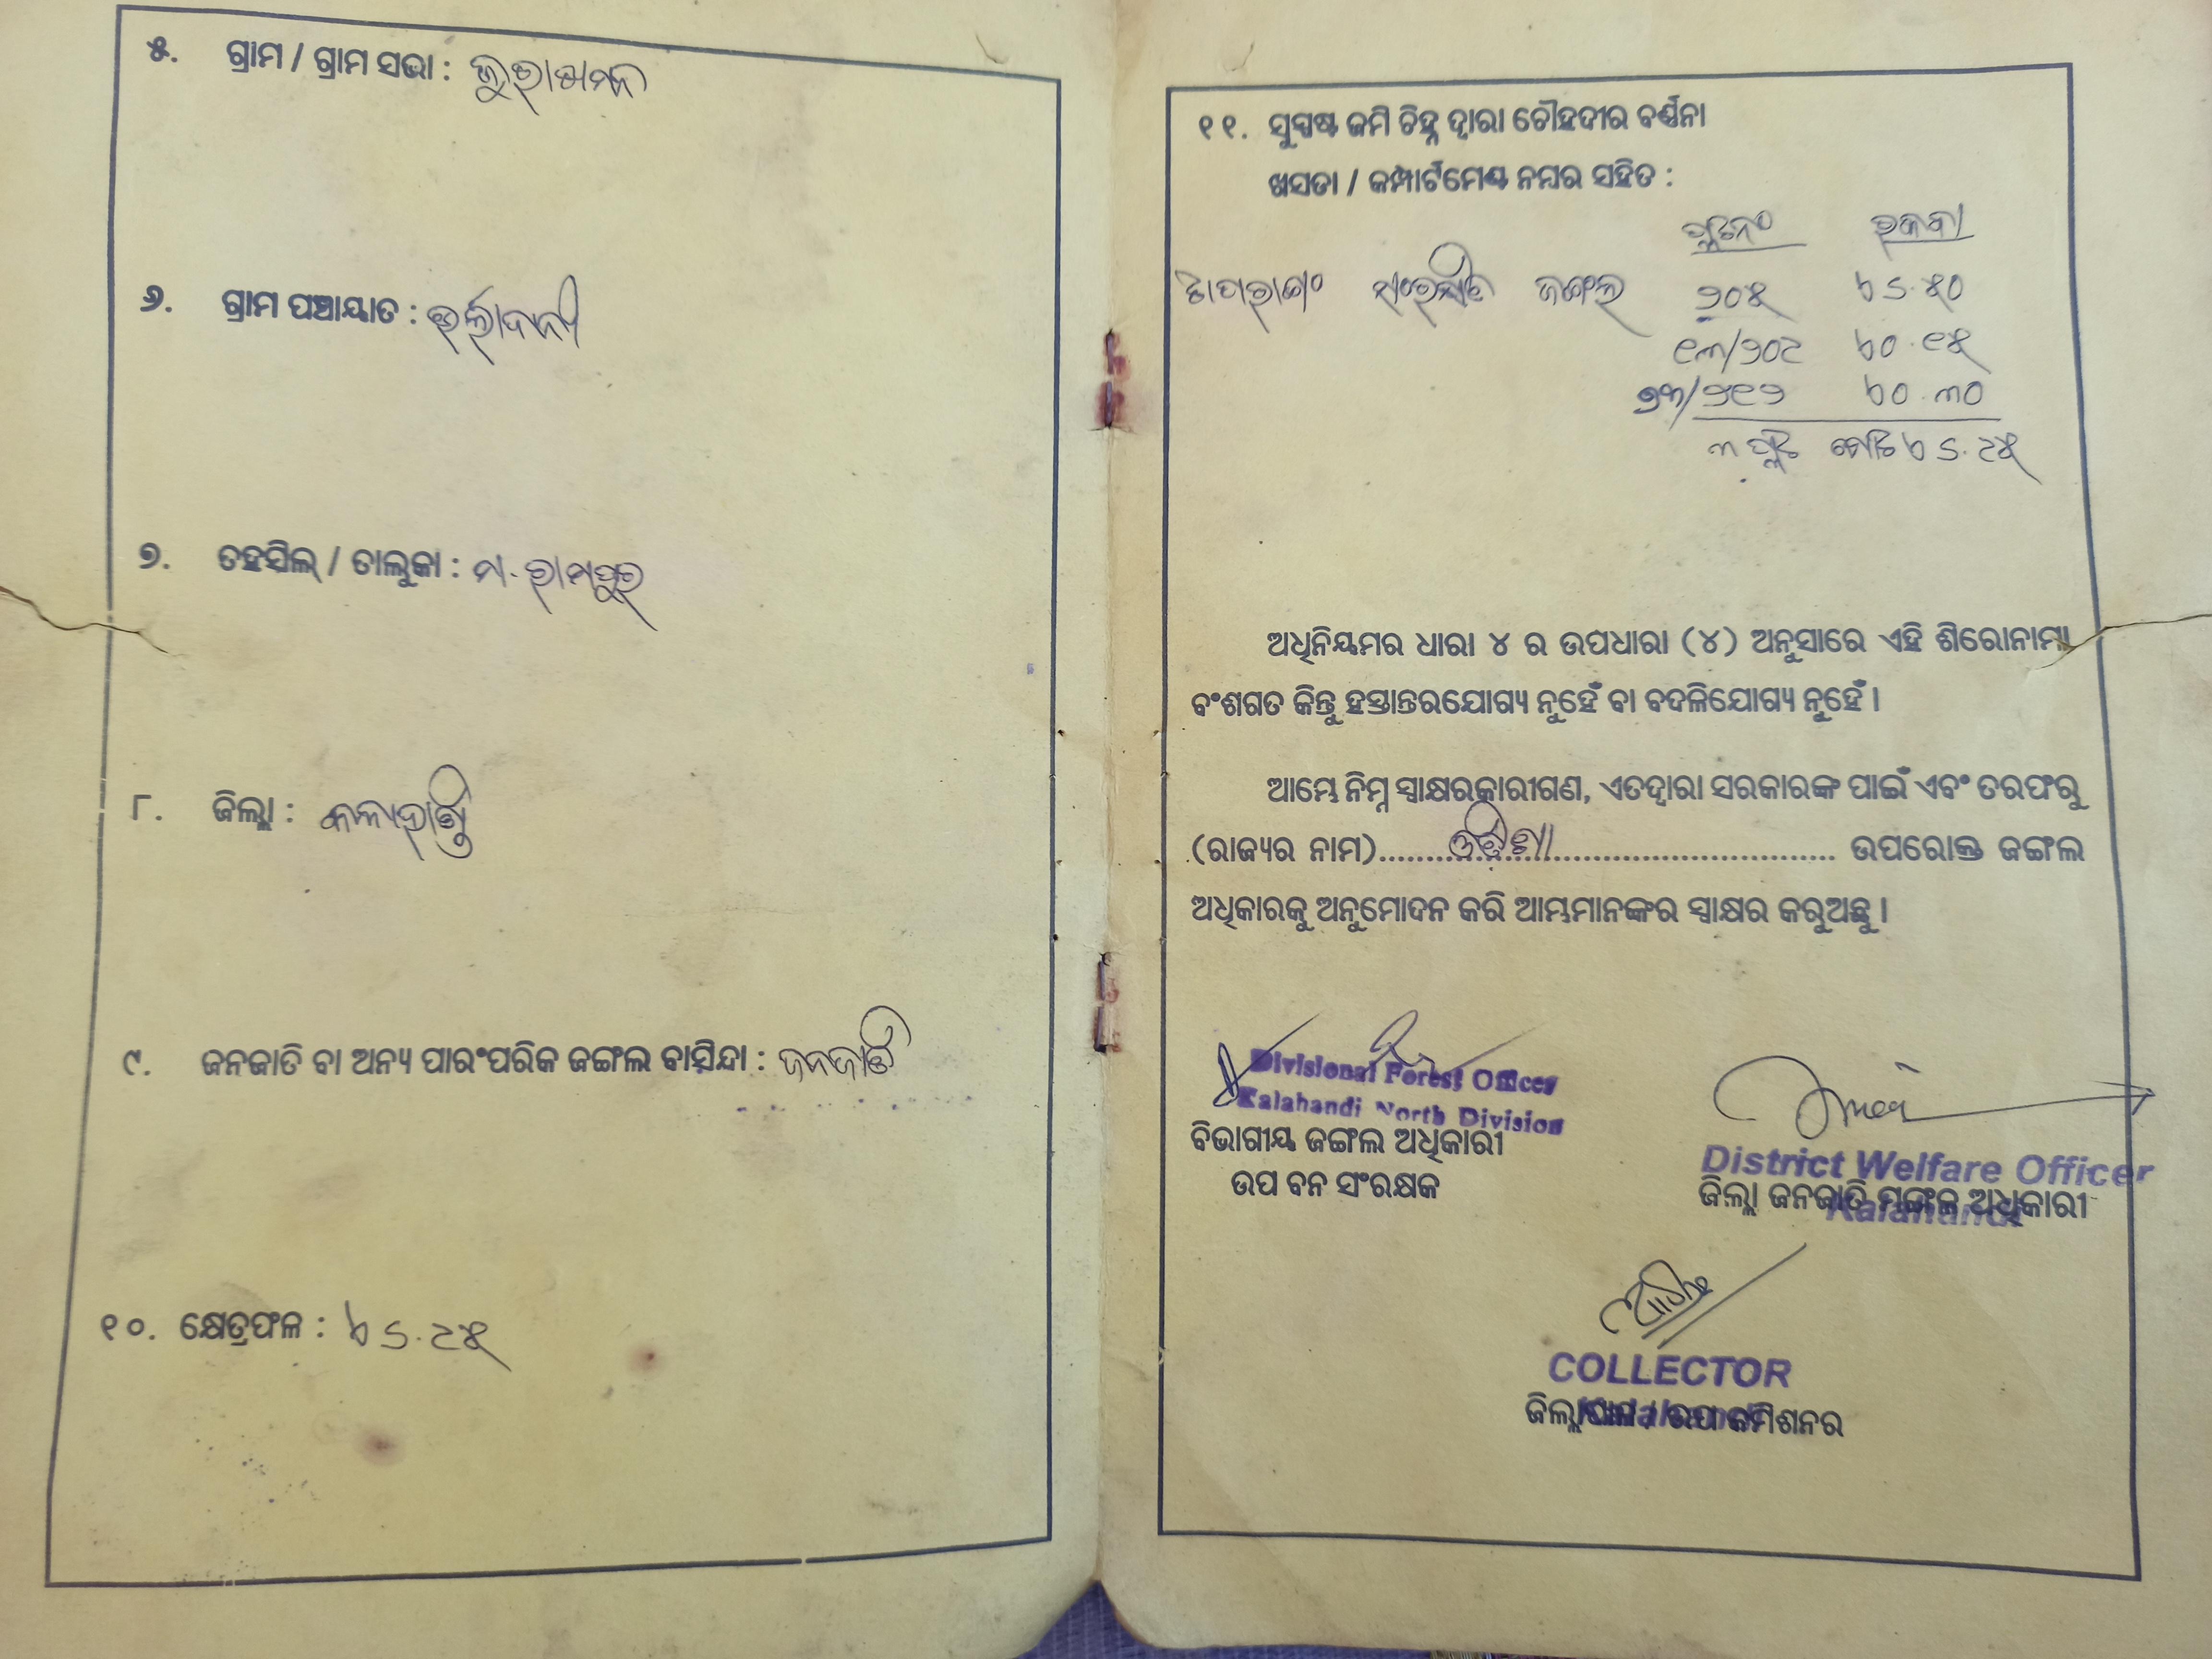 ୫. ଗ୍ରାମ / ଗ୍ରାମ ସଭା :
୬. ଗ୍ରାମ ପଞ୍ଚାୟାତ : ଉର୍ଲାଦାନୀ
୭. ତହସିଲ୍ / ତାଲୁକା : ମ. ରାମପୁର
୮. ଜିଲ୍ଲା : କଳାହାଣ୍ଡି
୯. ଜନଜାତି ବା ଅନ୍ୟ ପାରଂପରିକ ଜଙ୍ଗଲ ବାସିନ୍ଦା : ଜନଜାତି
୧୦. କ୍ଷେତ୍ରଫଳ :
୧୧. ସୁସ୍ପଷ୍ଟ ଜମି ଚିହ୍ନ ଦ୍ୱାରା ଚୌହଦୀର ବର୍ଣ୍ଣନା
ଖସଡା / କମ୍ପାର୍ଟମେଣ୍ଟ ନମ୍ବର ସହିତ :
ପ୍ଲଟନଂ ରକବା
ସଂରକ୍ଷିତ ଜଙ୍ଗଲ ୨୦୫
୩ ପ୍ଲଟ ମୋଟ
ଅଧିନିୟମର ଧାରା ୪ ର ଉପଧାରା (୪) ଅନୁସାରେ ଏହି ଶିରୋନାମା
ବଂଶଗତ କିନ୍ତୁ ହସ୍ତାନ୍ତରଯୋଗ୍ୟ ନୁହେଁ ବା ବଦଳିଯୋଗ୍ୟ ନୁହେଁ ।
ଆମ୍ଭେ ନିମ୍ନ ସ୍ୱାକ୍ଷରକାରୀଗଣ, ଏତଦ୍ୱାରା ସରକାରଙ୍କ ପାଇଁ ଏବଂ ତରଫରୁ
(ରାଜ୍ୟର ନାମ)........ଓଡ଼ିଶା........ ଉପରୋକ୍ତ ଜଙ୍ଗଲ
ଅଧିକାରକୁ ଅନୁମୋଦନ କରି ଆମ୍ଭମାନଙ୍କର ସ୍ୱାକ୍ଷର କରୁଅଛୁ ।
Divisional Forest Officer
Kalahandi North Division
ବିଭାଗୀୟ ଜଙ୍ଗଲ ଅଧିକାରୀ
ଉପ ବନ ସଂରକ୍ଷକ
District Welfare Officer
Kalahandi
ଜିଲ୍ଲା ଜନଜାତି ମଙ୍ଗଳ ଅଧିକାରୀ
COLLECTOR
Kalahandi
ଜିଲ୍ଲାପାଳ / ଉପ କମିଶନର